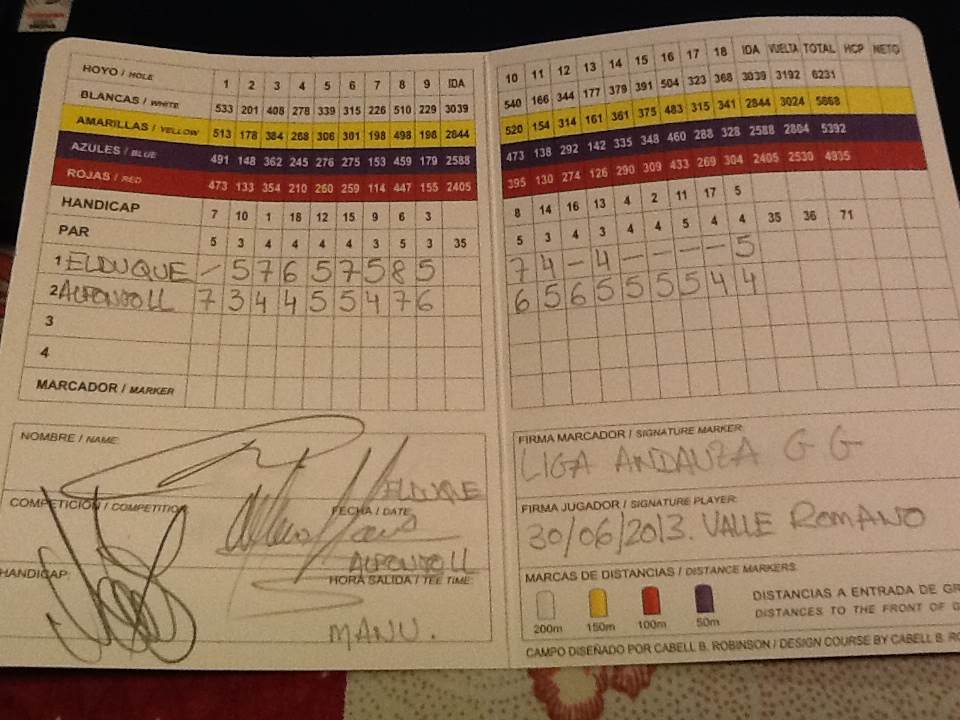 HOYO / HOLE 1 2 3 4 5 6 7 8 9 IDA
BLANCAS / WHITE 533 201 408 278 339 315 226 510 229 3039
AMARILLAS / YELLOW 513 178 384 268 306 301 198 498 198 2844
AZULES / BLUE 491 148 362 245 276 275 153 459 179 2588
ROJAS / RED 473 133 354 210 260 259 114 447 155 2405
HANDICAP 7 10 1 18 12 15 9 6 3
PAR 5 3 4 4 4 4 3 5 3 35
1 ELDUQUE – 5 7 6 5 7 5 8 5
2 ALFONSO LL 7 3 4 4 5 5 4 7 6
3
4
MARCADOR / MARKER
NOMBRE / NAME:
ELDUQUE
COMPETICIÓN / COMPETITION
FECHA / DATE
ALFONSO LL
HANDICAP:
HORA SALIDA / TEE TIME:
MANU.
10 11 12 13 14 15 16 17 18 IDA VUELTA TOTAL HCP NETO
540 166 344 177 379 391 504 323 368 3039 3192 6231
520 154 314 161 361 375 483 315 341 2844 3024 5868
473 138 292 142 335 348 460 288 328 2588 2804 5392
395 130 274 126 290 309 433 269 304 2405 2530 4935
8 14 16 13 4 2 11 17 5
5 3 4 3 4 4 5 4 4 35 36 71
7 4 – 4 – – – – 5
6 5 6 5 5 5 5 4 4
FIRMA MARCADOR / SIGNATURE MARKER:
LIGA ANDAUZA G G
FIRMA JUGADOR / SIGNATURE PLAYER:
30/06/2013. VALLE ROMANO
MARCAS DE DISTANCIAS / DISTANCE MARKERS:
200m 150m 100m 50m
DISTANCIAS A ENTRADA DE GR
DISTANCES TO THE FRONT OF G
CAMPO DISEÑADO POR CABELL B. ROBINSON / DESIGN COURSE BY CABELL B. RO